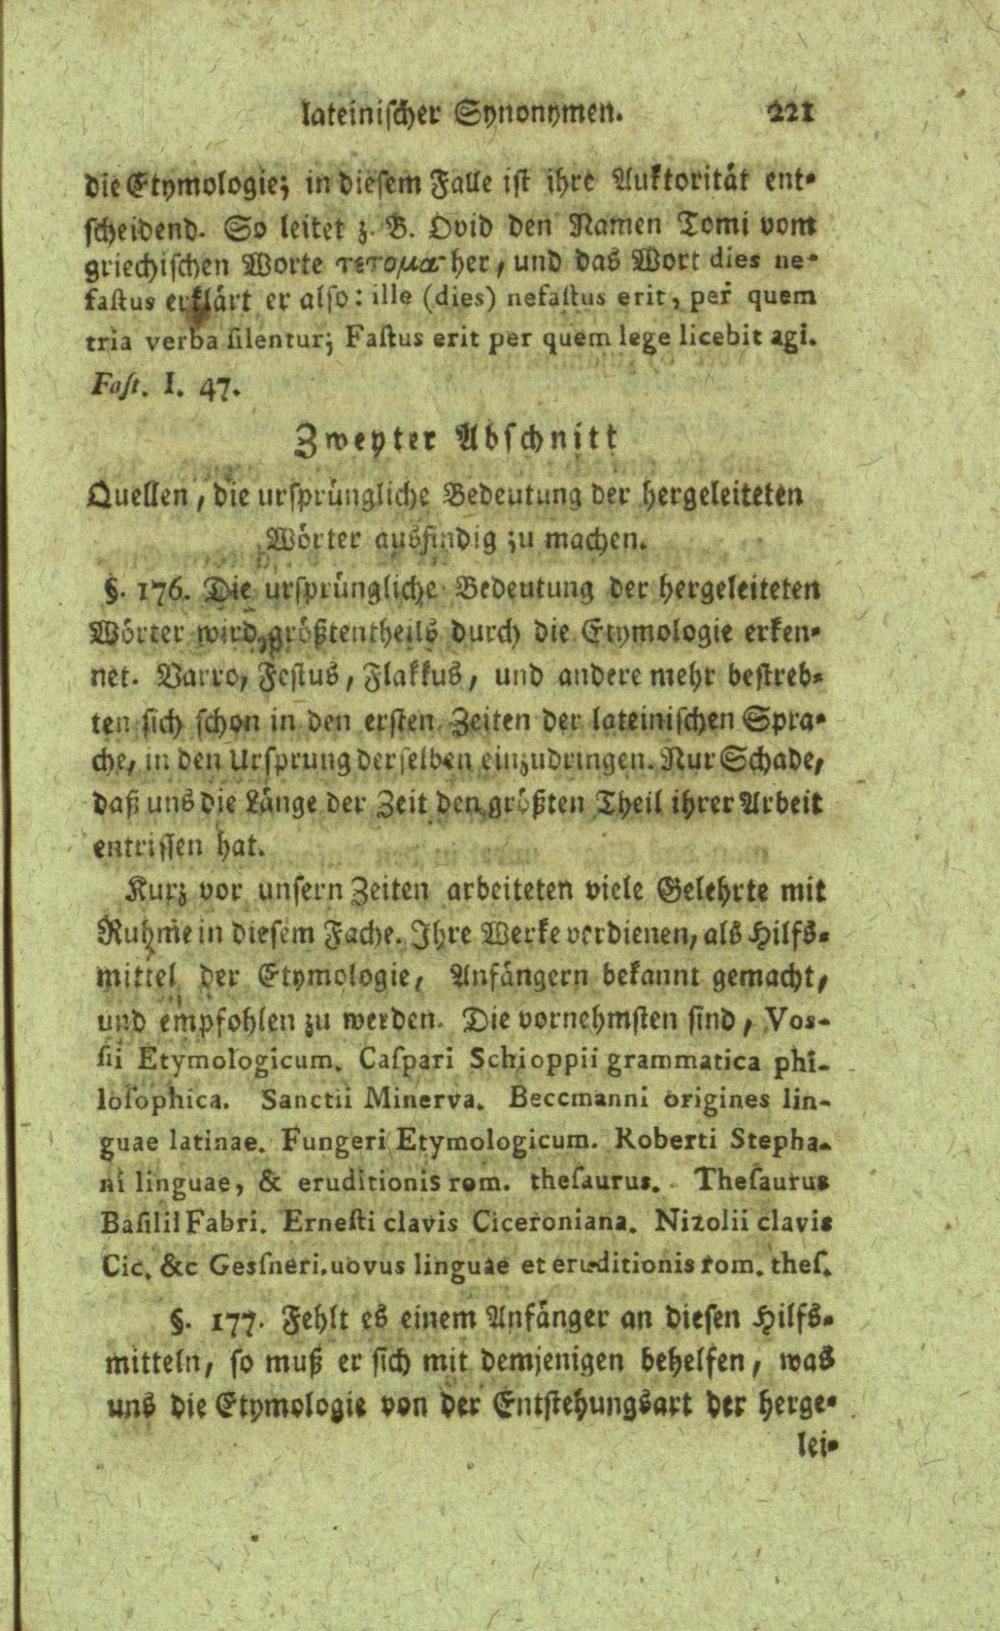 lateinischer Synonymen. 221
die Etymologie; in diesem Falle ist ihre Auktorität ent-
scheidend. So leitet z. B. Ovid den Namen Tomi vom
griechischen Worte τετομα her, und das Wort dies ne-
faſtus erklärt er also: ille (dies) nefaſtus erit, per quem
tria verba ſilentur; Faſtus erit per quem lege licebit agi.
Faſt. I. 47.
Zweyter Abschnitt
Quellen, die ursprüngliche Bedeutung der hergeleiteten
Wörter ausfindig zu machen.
§. 176. Die ursprüngliche Bedeutung der hergeleiteten
Wörter wird größtentheils durch die Etymologie erken-
net. Varro, Festus, Flakkus, und andere mehr bestreb-
ten sich schon in den ersten Zeiten der lateinischen Spra-
che, in den Ursprung derselben einzudringen. Nur Schade,
daß uns die Länge der Zeit den größten Theil ihrer Arbeit
entrissen hat.
Kurz vor unsern Zeiten arbeiteten viele Gelehrte mit
Ruhme in diesem Fache. Ihre Werke verdienen, als Hilfs-
mittel der Etymologie, Anfängern bekannt gemacht,
und empfohlen zu werden. Die vornehmsten sind, Vos-
ſii Etymologicum. Caſpari Schioppii grammatica phi-
loſophica. Sanctii Minerva. Beccmanni origines lin-
guae latinae. Fungeri Etymologicum. Roberti Stepha-
ni linguae, & eruditionis rom. theſaurus. Theſaurus
Baſilil Fabri. Erneſti clavis Ciceroniana. Nizolii clavis
Cic. &c Gesſneri. uovus linguae et eruditionis rom. theſ.
§. 177. Fehlt es einem Anfänger an diesen Hilfs-
mitteln, so muß er sich mit demjenigen behelfen, was
uns die Etymologie von der Entstehungsart der herge-
lei-